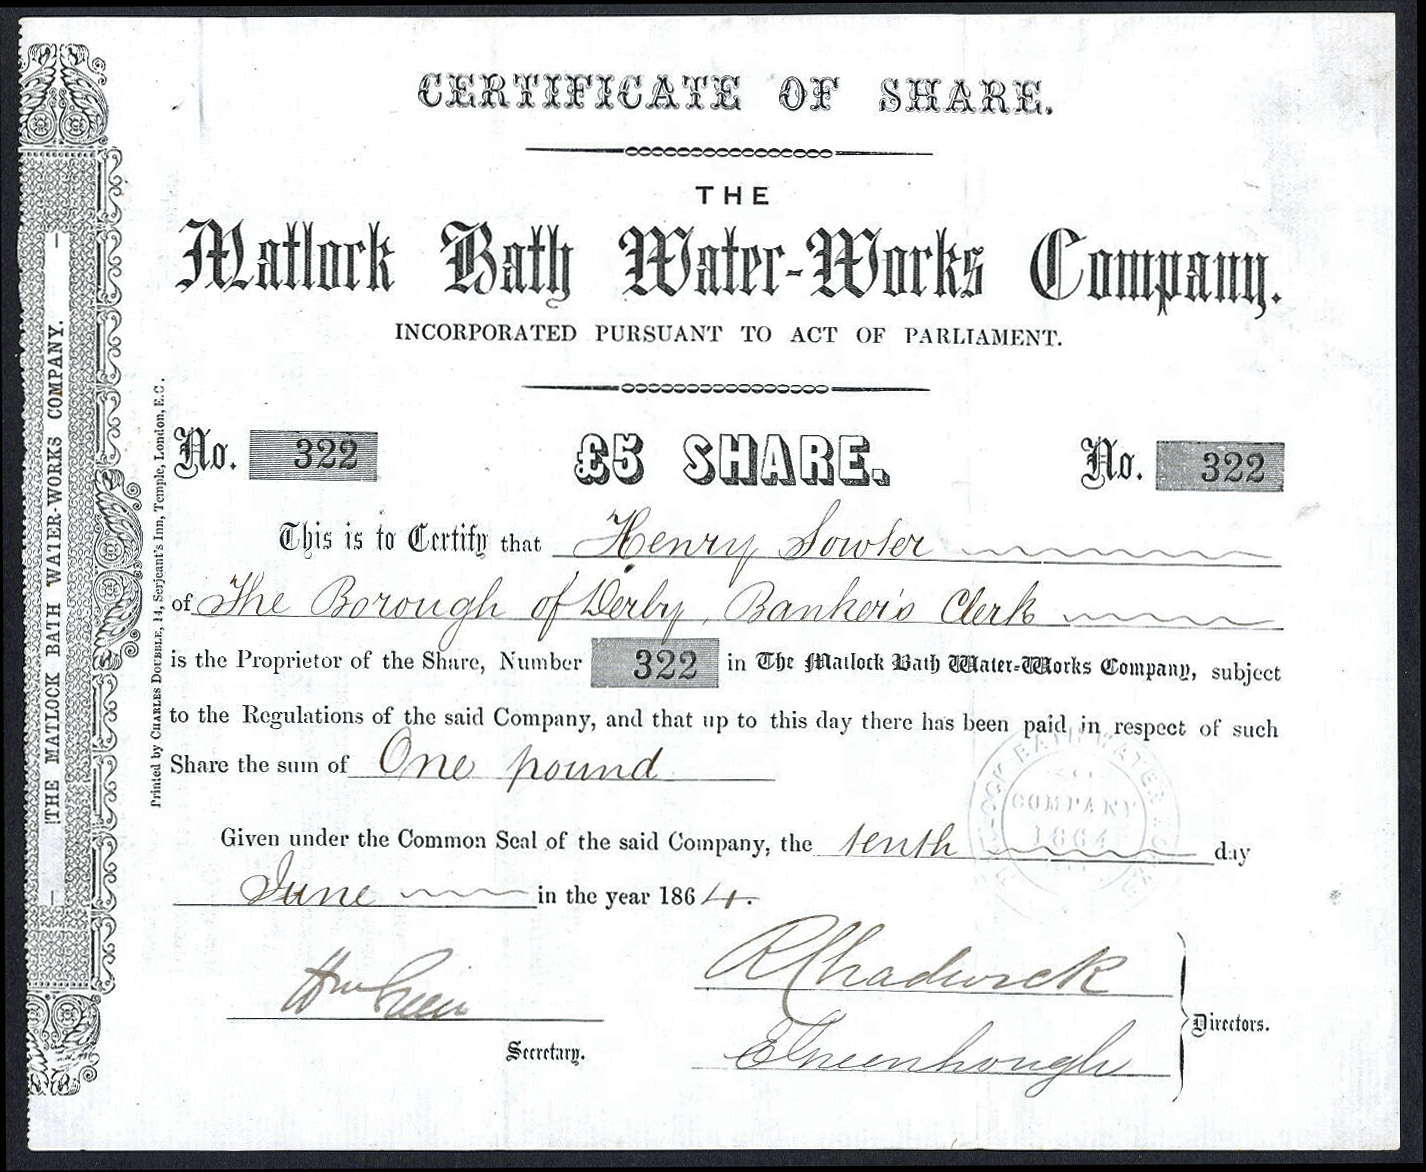 CERTIFICATE OF SHARE.
THE
Matlock Bath Water-Works Company.
INCORPORATED PURSUANT TO ACT OF PARLIAMENT.
No. 322 £5 SHARE. No. 322
This is to Certify that Henry Sowter
of The Borough of Derby, Banker's Clerk
is the Proprietor of the Share, Number 322 in The Matlock Bath Water-Works Company, subject
to the Regulations of the said Company, and that up to this day there has been paid in respect of such
Share the sum of One pound
Given under the Common Seal of the said Company, the tenth day
June in the year 1864.
Wm Green
Secretary.
R Chadwick
E Greenhough
Directors.
THE MATLOCK BATH WATER-WORKS COMPANY.
Printed by CHARLES DOUBLE, 14, Serjeant's Inn, Temple, London, E.C.
BATH WATER
COMPANY
1864